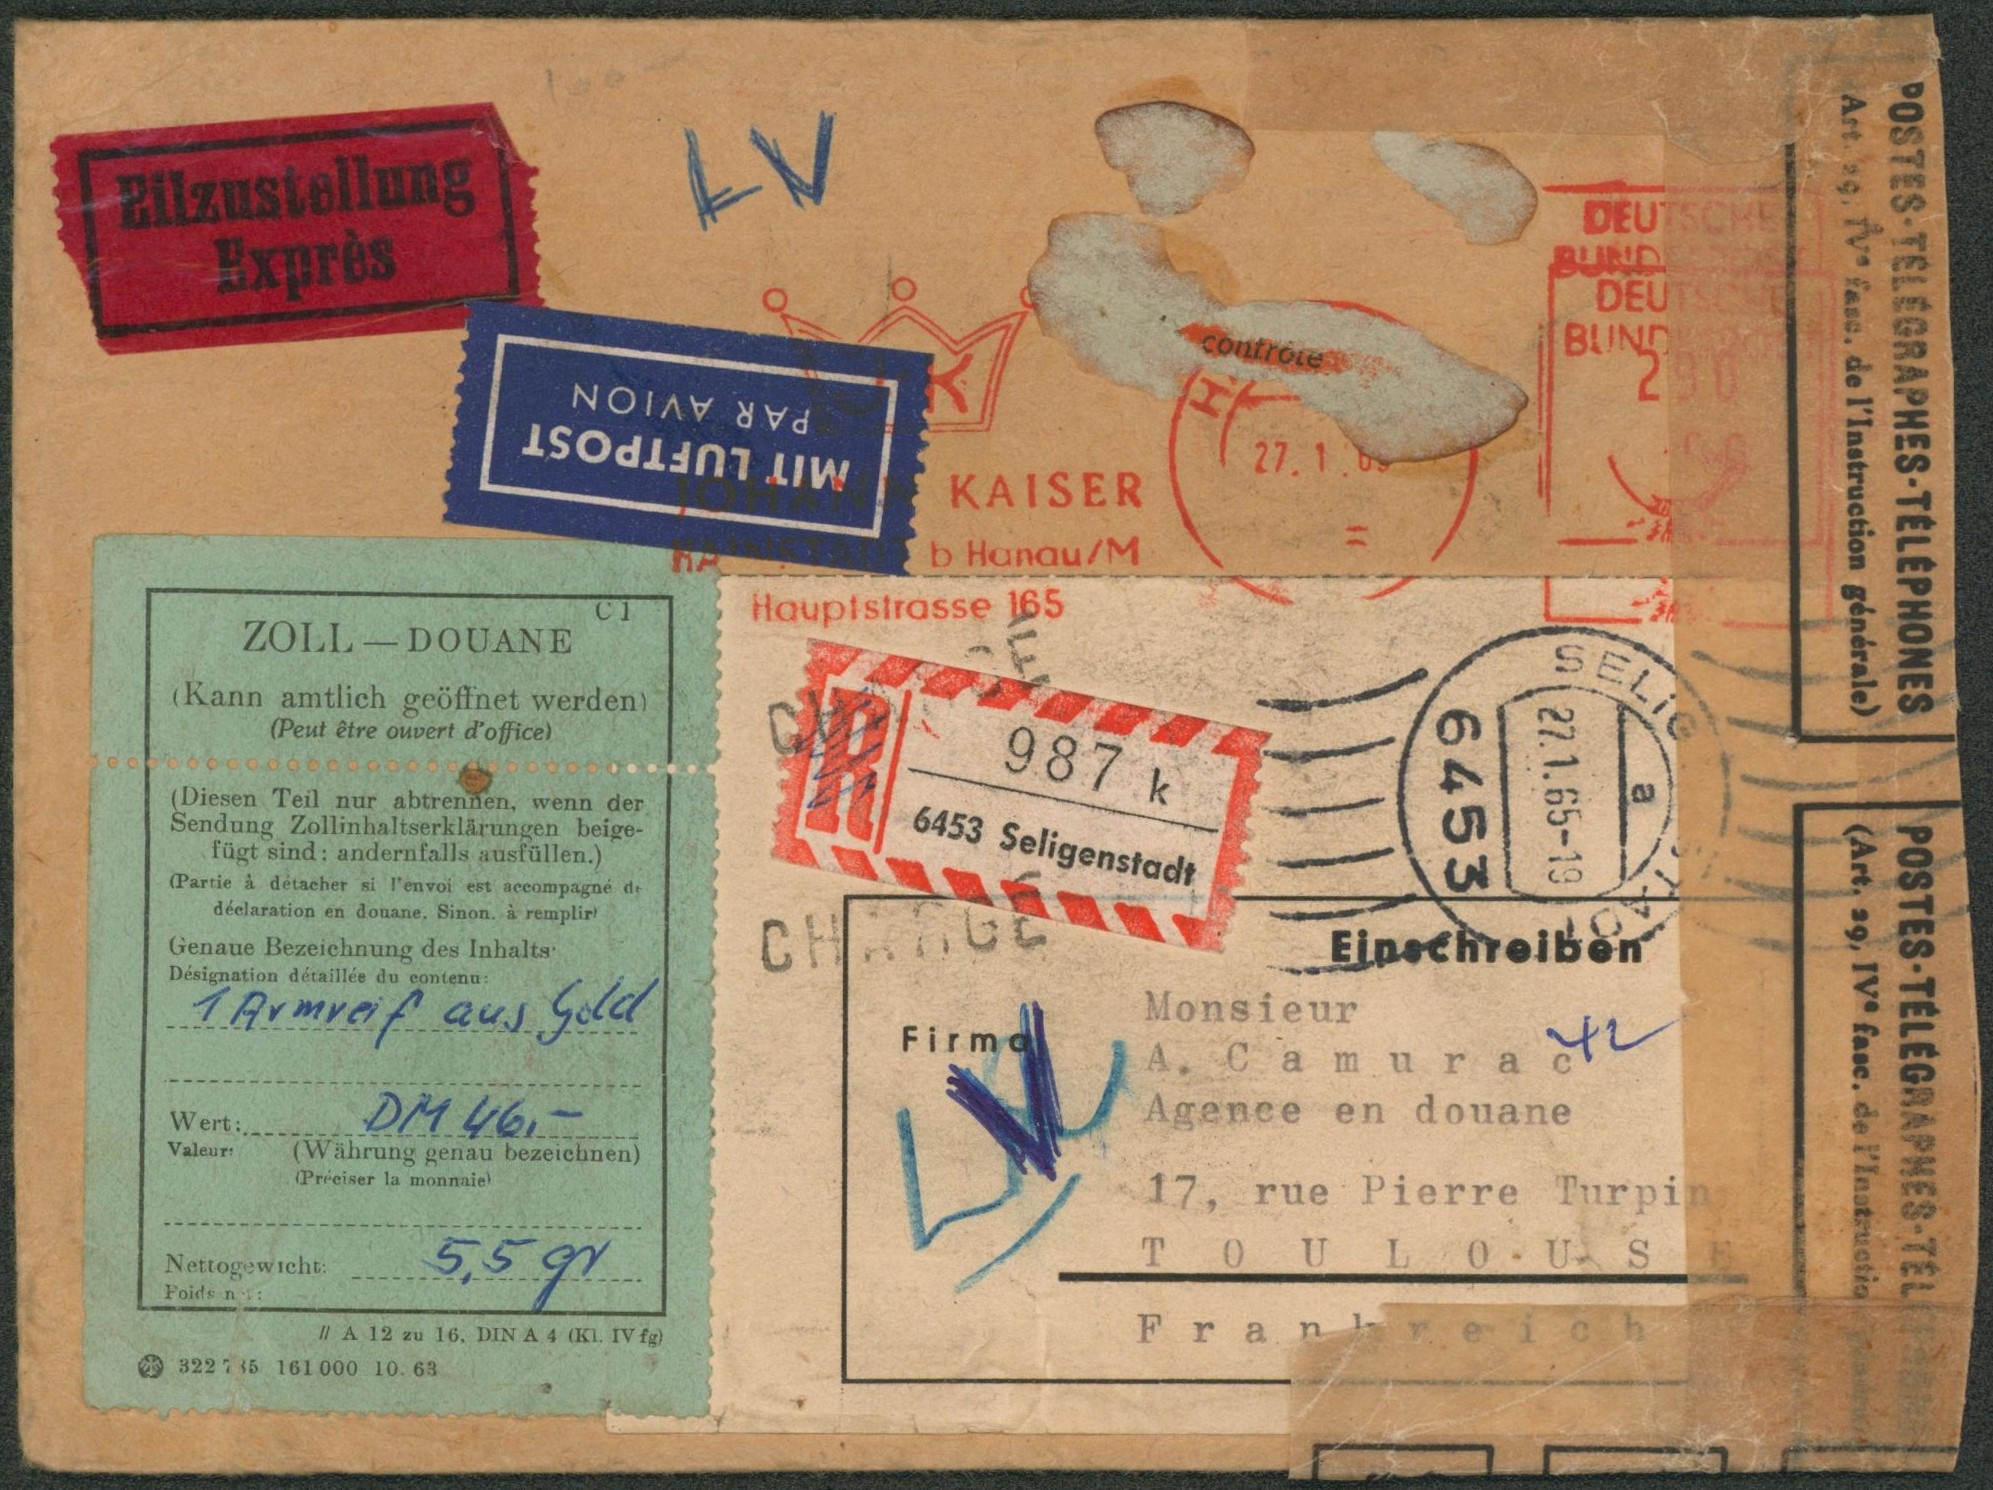 Eilzustellung
Exprès
LV
MIT LUFTPOST
PAR AVION
K
JOHANN KAISER
b Hanau/M
Hauptstrasse 165
contrôle
H
27. 1.
DEUTSCHE
BUNDESPOST
DEUTSCHE
BUNDESPOST
290
POSTES·TÉLÉGRAPHES·TÉLÉPHONES
Art. 29, IVᵉ fasc. de l'Instruction générale)
C 1
ZOLL — DOUANE
(Kann amtlich geöffnet werden)
(Peut être ouvert d'office)
(Diesen Teil nur abtrennen, wenn der
Sendung Zollinhaltserklärungen beige-
fügt sind; andernfalls ausfüllen.)
(Partie à détacher si l'envoi est accompagné de
déclaration en douane. Sinon, à remplir)
Genaue Bezeichnung des Inhalts:
Désignation détaillée du contenu:
1 Armreif aus Gold
Wert: DM 46.-
Valeur: (Währung genau bezeichnen)
(Préciser la monnaie)
Nettogewicht: 5,5 gr
Poids net:
// A 12 zu 16, DIN A 4 (Kl. IV fg)
322 785 161 000 10. 63
CHARGE
R
987 k
6453 Seligenstadt
CHARGE
SELIG
6453
27.1.65-19
a
Einschreiben
Firma
Monsieur
A. Camurac
Agence en douane
17, rue Pierre Turpin
TOULOUSE
Frankreich
POSTES·TÉLÉGRAPHES·TÉL
(Art. 29, IVᵉ fasc. de l'Instructio